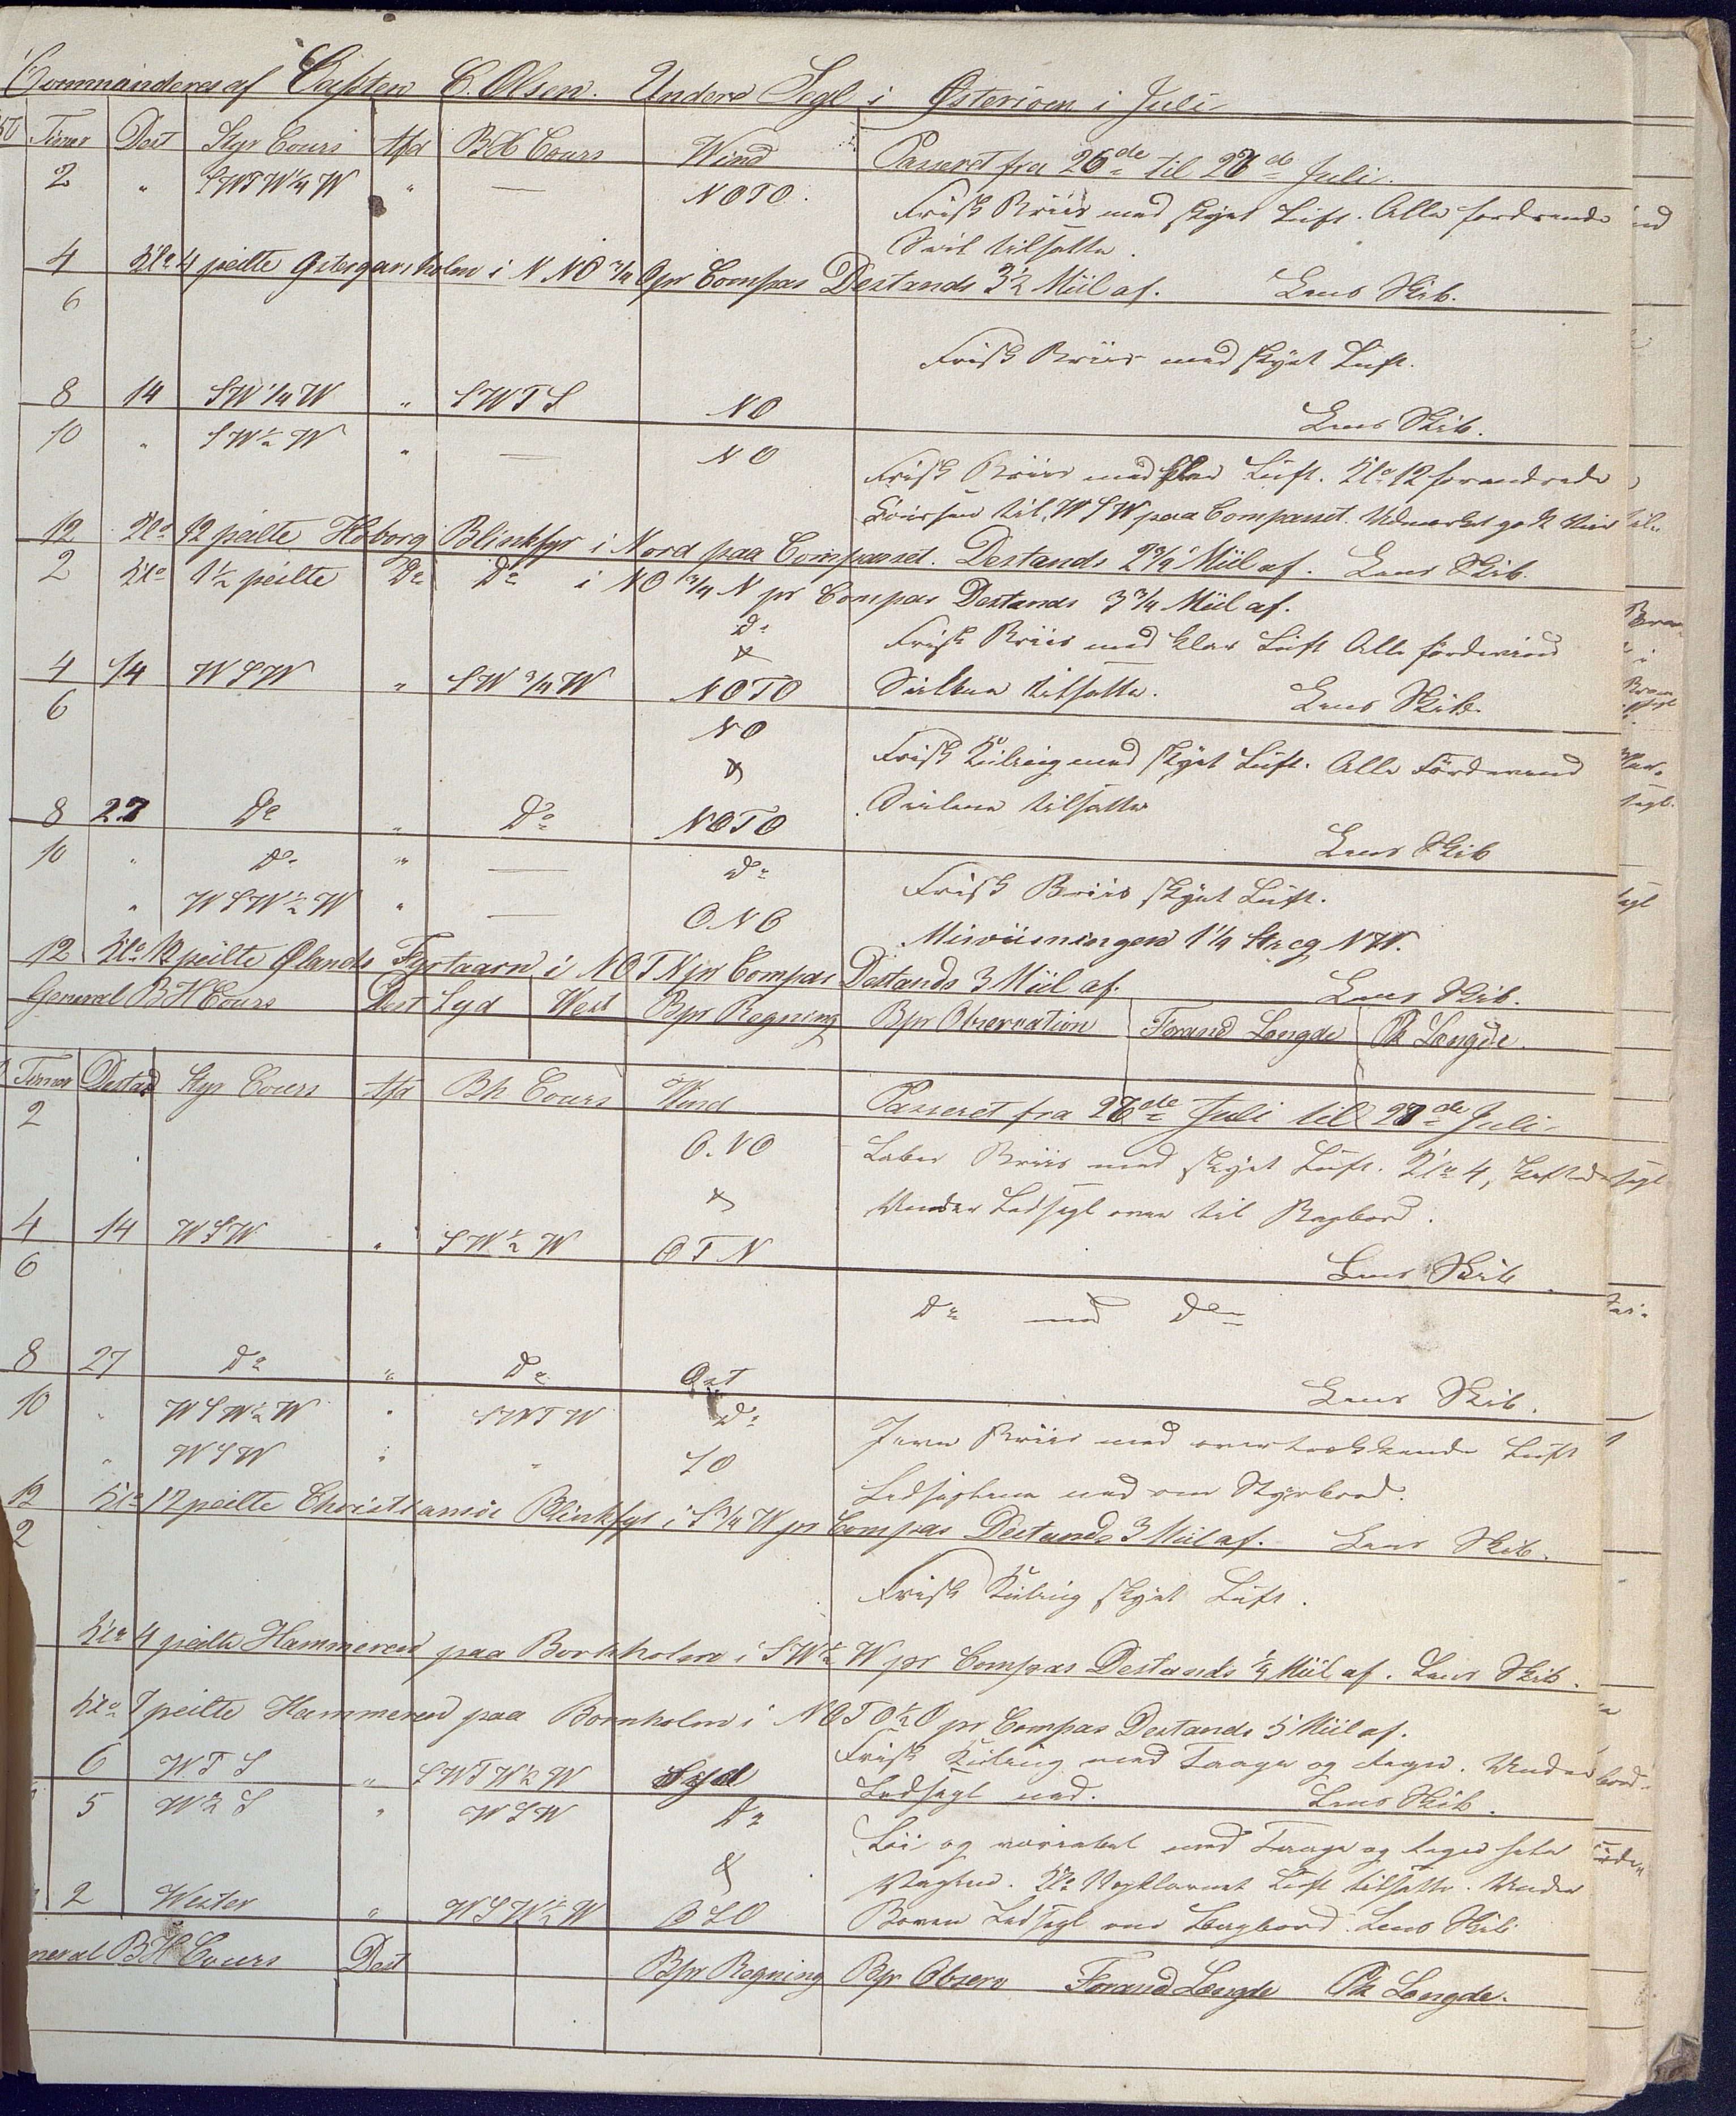 Commanderes af Capten C. Olsen. Under Segl i Østersøen i Juli
Timer Dest Styr Cours Afd BH Cours Wind Passeret fra 26de til 27de Juli.
2 " SWTW1/4W " — NOTO. Frisk Briis med skyet Luft. Alle fordrende
Seil tilsatte.
4 Klo 4 peilte Østergarsholm i NNO 3/4 O pr Compas Destands 3 1/2 Miil af. Lens Skib.
6
Frisk Briis med skyet Luft.
8 14 SW1/4W " SWTS NO Lens Skib.
10 " SW1/2W " — NO Frisk Briis med klar Luft. Klo 12 forandrede
Coursen til WSW paa Compasset. Udmerket godt
12 Klo 12 peilte Hoborg Blinkfyr i Nord paa Compasset. Destands 2 3/4 Miil af. Lens Skib.
2 Klo 1 1/2 peilte Do Do i NO 3/4 N pr Compas Destands 3 3/4 Miil af.
Do Frisk Briis med klar Luft Alle fordevind
&
4 14 WSW " SW3/4W NOTO Seilene tilsatte. Lens Skib.
6 NO
& Frisk Kuling med skyet Luft. Alle Fordevind
Seilene tilsatte
8 27 Do " Do NOTO Lens Skib
10 " Do " — Do Frisk Briis skyet Luft.
" WSW1/2W " — ONO Misviisningen 1 1/4 Streg NW.
12 Klo 12 peilte Ølands Fyrtaarn i NOTN pr Compas Destands 3 Miil af. Lens Skib.
General BH Cours Dest Syd West Bpr Regning Bpr Observation Forand Længde Pk Længde.
Timer Destad Styr Cours Afd Bh Cours Wind Passeret fra 26de Juli til 27de Juli
2 O.NO Laber Briis med skyet Luft. Klo 4,
& Under Ledsegl over til Bagbord.
4 14 WSW " SW1/2W OTN Lens Skib
6
Do med Do
8 27 Do " Do Ost Lens Skib.
10 " WSW1/2W " SWTW Do Jevn Briis med overtrækkende Luft
" WSW " " SO Ledseglene ned om Styrbord.
12 Klo 12 peilte Christiansøe Blinkfyr i S 3/4 W pr Compas Destands 3 Miil af. Lens Skib.
2
Frisk Kuling skyet Luft.
Klo 4 peilte Hammeren paa Bornholm i SW1/2 W pr Compas Destands 1/4 Miil af. Lens Skib.
Klo 7 peilte Hammeren paa Bornholm i NOTO1/2O pr Compas Destands 5 Miil af.
6 WTS " SWTW1/2W Syd Frisk Kuling med Taage og Regn. Under
Ledsegl ned. Lens Skib.
5 W1/2S " WSW Do og variabel med Taage og Regn
&
2 Wester " WSW1/2W OSO Boven Ledsegl om Bagbord. Lens Skib
neral BH Cours Dest Bpr Regning Bpr Observ Forand Længde Pk Længde.